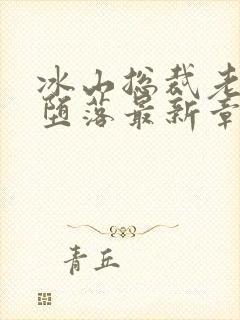 冰山总裁老
堕落最新章
青丘